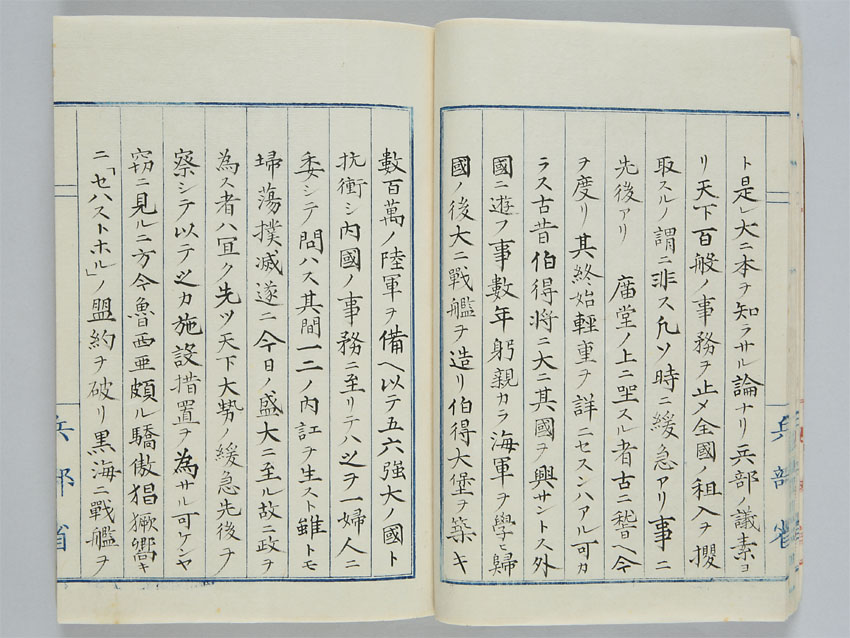 ト是レ大ニ本ヲ知ラサル論ナリ兵部ノ議素ヨ
リ天下百般ノ事務ヲ止メ全國ノ租入ヲ攖
取スルノ謂ニ非ス凢ソ時ニ緩急アリ事ニ
先後アリ　庿堂ノ上ニ坐スル者古ニ嵆ヘ今
ヲ度リ其終始輕重ヲ詳ニセスンハアル可カ
ラス古昔伯得将ニ大ニ其國ヲ興サントス外
國ニ遊フ事數年躬親カラ海軍ヲ學ヒ歸
國ノ後大ニ戰艦ヲ造リ伯得大堡ヲ築キ
數百萬ノ陸軍ヲ備ヘ以テ五六强大ノ國ト
抗衝シ内國ノ事務ニ至リテハ之ヲ一婦人ニ
委シテ問ハス其間一二ノ内訌ヲ生スト雖トモ
埽蕩撲滅遂ニ今日ノ盛大ニ至ル故ニ政ヲ
為ス者ハ冝ク先ツ天下大勢ノ緩急先後ヲ
察シテ以テ之カ施設措置ヲ為サル可ケンヤ
窃ニ見ルニ方今魯西亜頗ル驕傲猖獗嚮キ
ニ「セハストホル」ノ盟約ヲ破リ黒海ニ戰艦ヲ
兵部省
兵部省